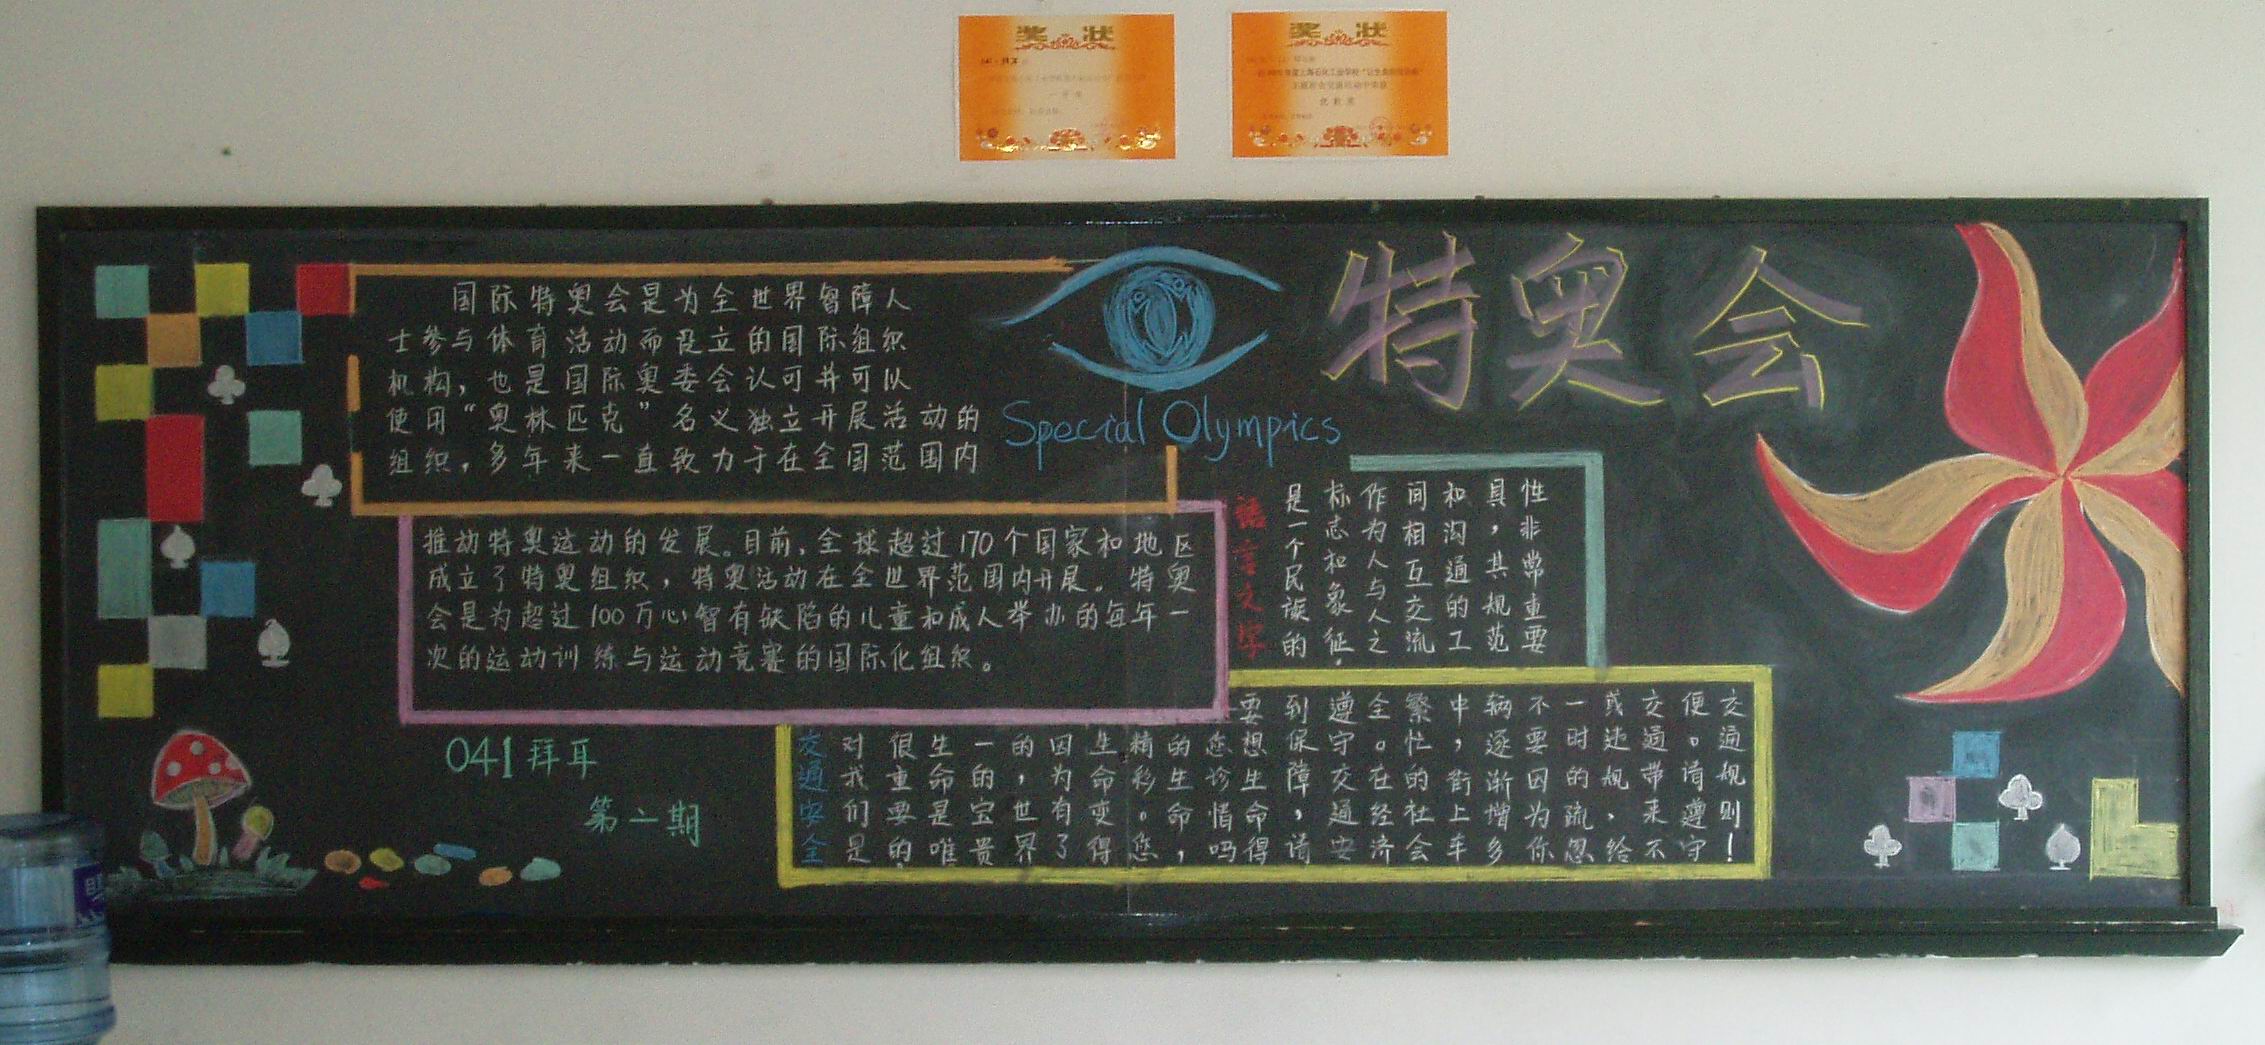 奖状
奖状
特奥会
Special Olympics
国际特奥会是为全世界智障人
士参与体育活动而设立的国际组织
机构，也是国际奥委会认可并可以
使用“奥林匹克”名义独立开展活动的
组织，多年来一直致力于在全国范围内
推动特奥运动的发展。目前，全球超过170个国家和地区
成立了特奥组织，特奥活动在全世界范围内开展。特奥
会是为超过100万心智有缺陷的儿童和成人举办的每年一
次的运动训练与运动竞赛的国际化组织。
語言文字
是一个民族的
标志和象征，
作为人与人之
间相互交流
和沟通的工
具，其规范
性非常重要
交通安全
对我们是
很重要的
生命是唯
一的宝贵
的，世界
因为有了
生命变得
精彩。您
的生命，
您珍惜吗
要想生命得
到保障，请
遵守交通安
全。在经济
繁忙的社会
中，街上车
辆逐渐增多
不要因为你
一时的疏忽
或违规，给
交通带来不
便。请遵守
交通规则！
041拜耳
第二期